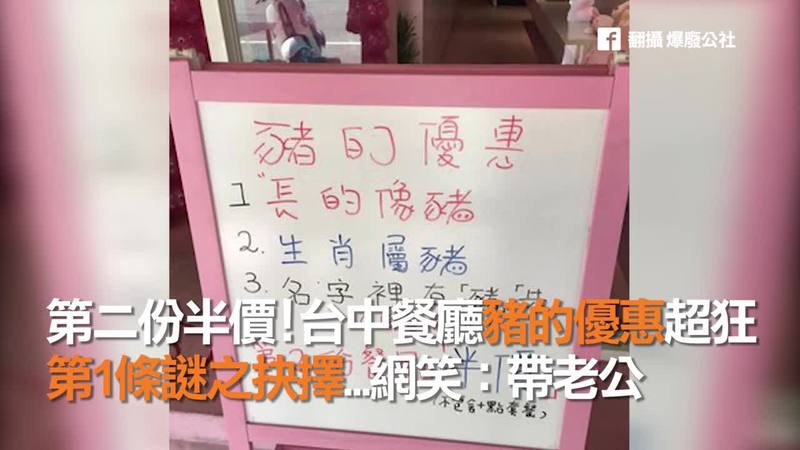 翻攝 爆廢公社
豬的優惠
1 長的像豬
2. 生肖屬豬
3. 名字裡有「豬」
第二份半價！台中餐廳豬的優惠超狂
第1條謎之抉擇...網笑：帶老公
(不包含+點套餐)